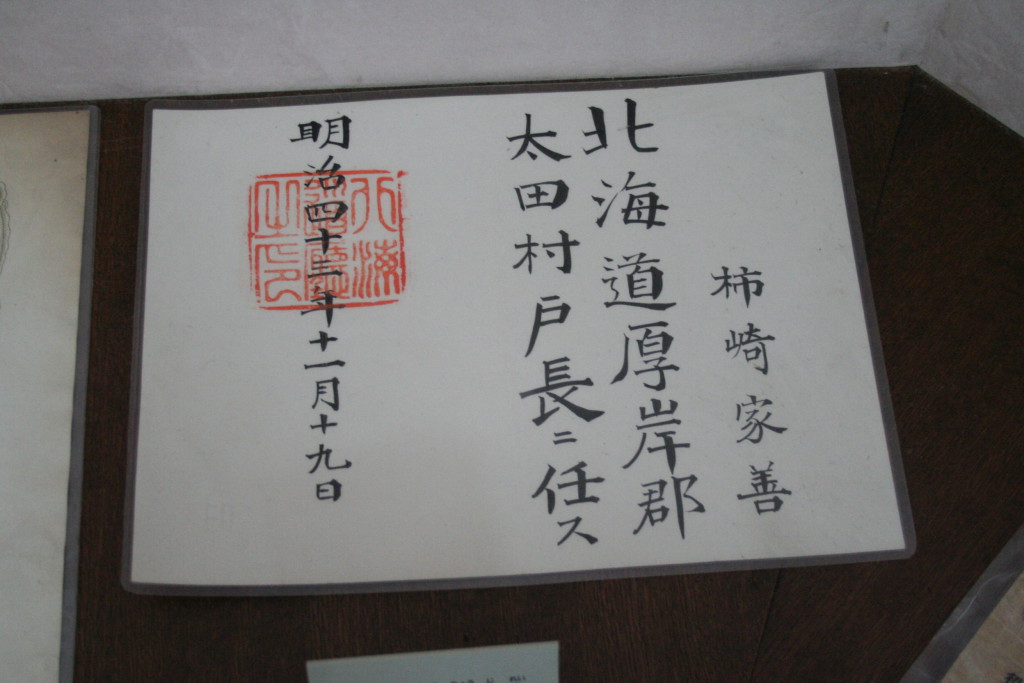 柿崎家善
北海道厚岸郡
太田村戸長ニ任ス
明治四十三年十一月十九日
北海道廳之印